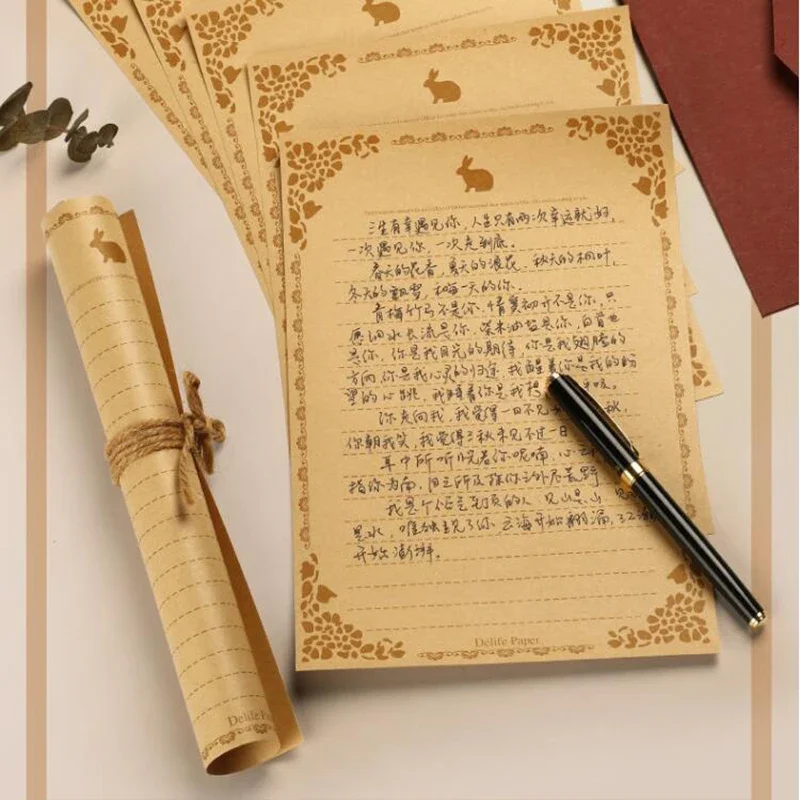 三生有幸遇见你，人生只有两次幸运就好，
一次遇见你，一次走到底。
春天的花香，夏天的浪花，秋天的枫叶，
冬天的飘雪，和每一天的你。
青梅竹马不是你，情窦初开不是你，只
愿细水长流是你，柴米油盐是你，白首也
是你，你是我目光的期待，你是我翅膀的
方向，你是我心灵的归途，我醒着你是我的盼
望的心跳，我睡着你是我 吸。
你走向我，我觉得一日不见 秋，
你朝我笑，我觉得三秋未见不过一日
耳中所听 你呢喃，心之
指你为南，目之所及除你之外尽荒野
我是个俗气至顶的人，见山是山，见
是水，唯独见了你，云海开始翻涌，江潮
开始澎湃。
Delife Paper
Delife Pa